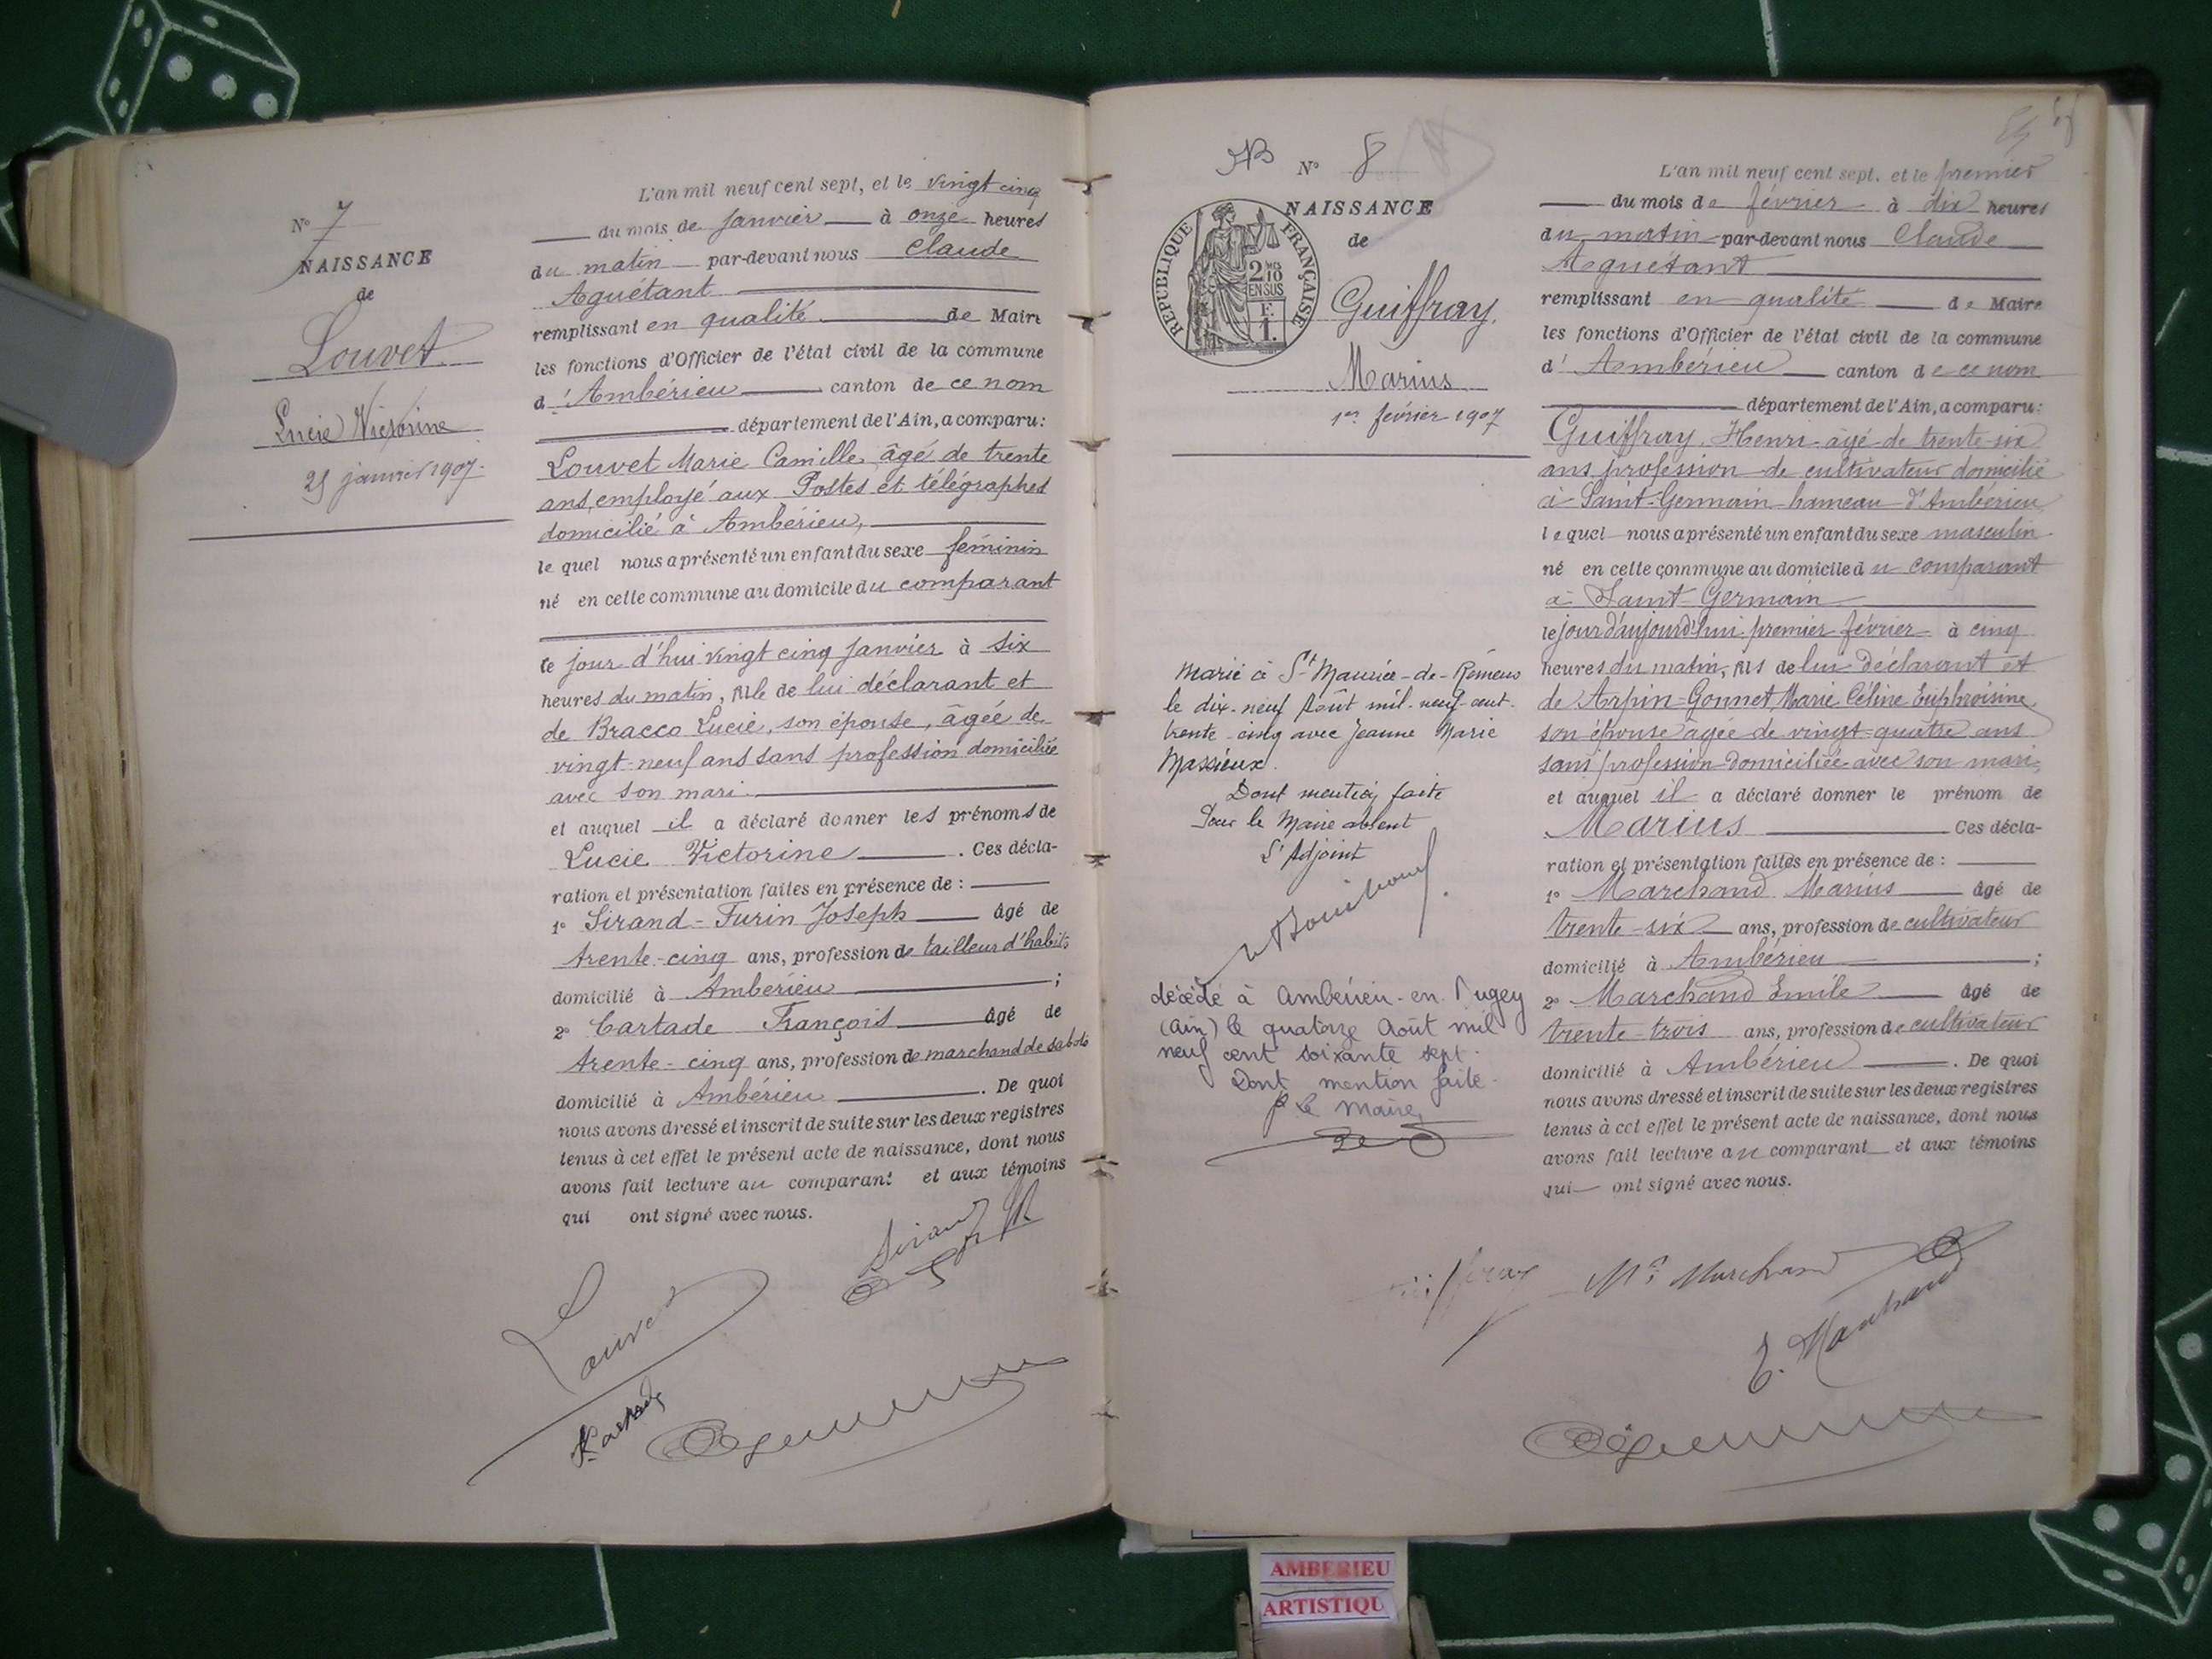 N° 7
NAISSANCE
de
Louvet
Lucie Victorine
25 janvier 1907.
L'an mil neuf cent sept, et le vingt cinq
du mois de Janvier à onze heures
du matin par-devant nous Claude
Aguétant
remplissant en qualité de Maire
les fonctions d'Officier de l'état civil de la commune
d'Ambérieu canton de ce nom
département de l'Ain, a comparu:
Louvet Marie Camille âgé de trente
ans, employé aux Postes et télégraphes
domicilié à Ambérieu,
le quel nous a présenté un enfant du sexe féminin
né en cette commune au domicile du comparant
le jour d'hui vingt cinq Janvier à six
heures du matin, fille de lui déclarant et
de Bracco Lucie, son épouse, âgée de
vingt-neuf ans sans profession domiciliée
avec son mari.
et auquel il a déclaré donner les prénoms de
Lucie Victorine. Ces décla-
ration et présentation faites en présence de :
1° Sirand-Furin Joseph âgé de
trente-cinq ans, profession de tailleur d'habits
domicilié à Ambérieu ;
2° Cartade François âgé de
trente-cinq ans, profession de marchand de sabots
domicilié à Ambérieu. De quoi
nous avons dressé et inscrit de suite sur les deux registres
tenus à cet effet le présent acte de naissance, dont nous
avons fait lecture au comparant et aux témoins
qui ont signé avec nous.
Sirand
Louvet
N° 8
NAISSANCE
de
REPUBLIQUE FRANÇAISE
2 MES
10
EN SUS
1 F.
Guiffray
Marius
1er février 1907
Marié à St Maurice-de-Rémens
le dix-neuf Août mil-neuf-cent-
trente-cinq avec Jeanne Marie
Massieux.
Dont mention faite
Pour le Maire absent
L'Adjoint
décédé à Ambérieu-en-Bugey
(Ain) le quatorze Août mil
neuf cent soixante sept.
Dont mention faite.
P. le Maire,
L'an mil neuf cent sept, et le premier
du mois de février à dix heures
du matin par-devant nous Claude
Aguétant
remplissant en qualité de Maire
les fonctions d'Officier de l'état civil de la commune
d'Ambérieu canton de ce nom
département de l'Ain, a comparu:
Guiffray Henri âgé de trente-six
ans profession de cultivateur domicilié
à Saint-Germain hameau d'Ambérieu
le quel nous a présenté un enfant du sexe masculin
né en cette commune au domicile du comparant
à Saint-Germain
le jour d'aujourd'hui premier février à cinq
heures du matin, fils de lui déclarant et
de Arpin-Gonnet Marie Céline Euphroisine
son épouse âgée de vingt-quatre ans
sans profession domiciliée avec son mari,
et auquel il a déclaré donner le prénom de
Marius Ces décla-
ration et présentation faites en présence de :
1° Marchand Marius âgé de
trente-six ans, profession de cultivateur
domicilié à Ambérieu ;
2° Marchand Emile âgé de
trente-trois ans, profession de cultivateur
domicilié à Ambérieu. De quoi
nous avons dressé et inscrit de suite sur les deux registres
tenus à cet effet le présent acte de naissance, dont nous
avons fait lecture au comparant et aux témoins
qui ont signé avec nous.
Ms Marchand
E. Marchand
AMBERIEU
ARTISTIQU